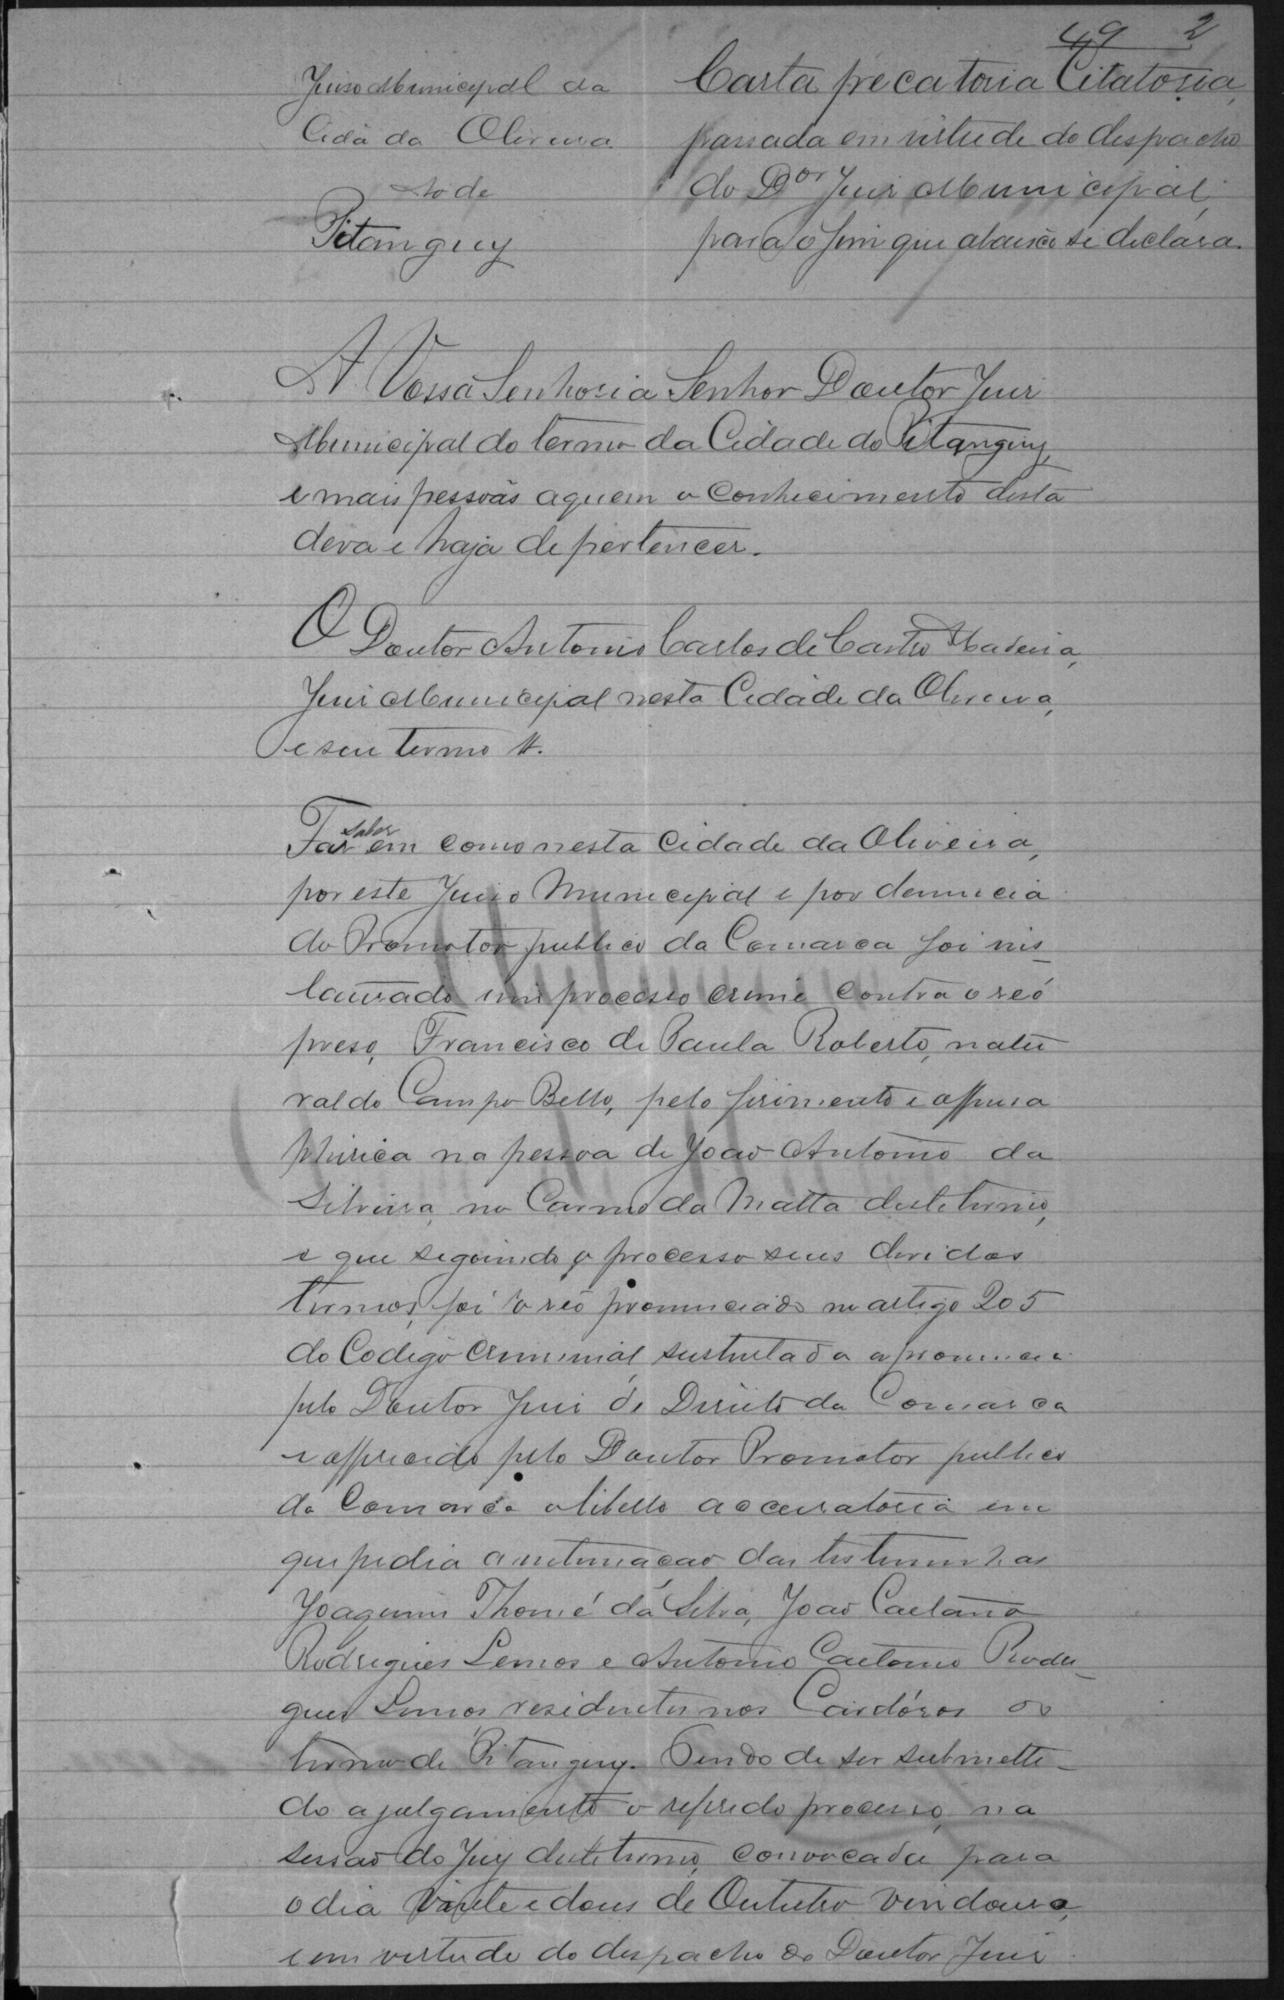 49 2
Juiso Municipal da
Cidᵉ da Oliveira
Ao de
Pitanguy
Carta precatoria Citatoria,
passada em virtude do despacho
do Dor Juis Municipal,
para o fim que abaixo se declara.
A Vossa Senhoria Senhor Doutor Juis
Municipal do termo da Cidade do Pitanguy,
e mais pessoas aquem o conhecimento desta
deva e haja de pertencer.
O Doutor Antonio Carlos de Castro Madeira,
Juis Municipal nesta Cidade da Oliveira,
e seu termo &.
Faz saber em como nesta Cidade da Oliveira,
por este Juiso Municipal e por denuncia
do Promotor publico da Comarca foi ins-
taurado um processo crime contra o reó
preso, Francisco de Paula Roberto, natu
ral do Campo Bello, pelo ferimento e offensa
phisica na pessoa de João Antonio da
Silveira, no Carmo da Matta deste termo,
e que seguindo o processo seus devidos
termos, foi o reó pronunciado no artigo 205
do Codigo Criminal sustentada a pronuncia
pelo Doutor Juis de Direito da Comarca
e offerecido pelo Doutor Promotor publico
da Comarca o libello accusatorio em
que pedia a notificação das testemunhas
Joaquim Thomé da Silva, João Caetano
Rodrigues Lemos e Antonio Caetano Rodri-
gues Lemos residentes nos Cardósos do
termo de Pitanguy. Tendo de ser submetti-
do a julgamento o referido processo, na
sessão do Jury deste termo, convocada para
o dia vinte e dous de Outubro vindouro,
e em virtude do despacho do Doutor Juis